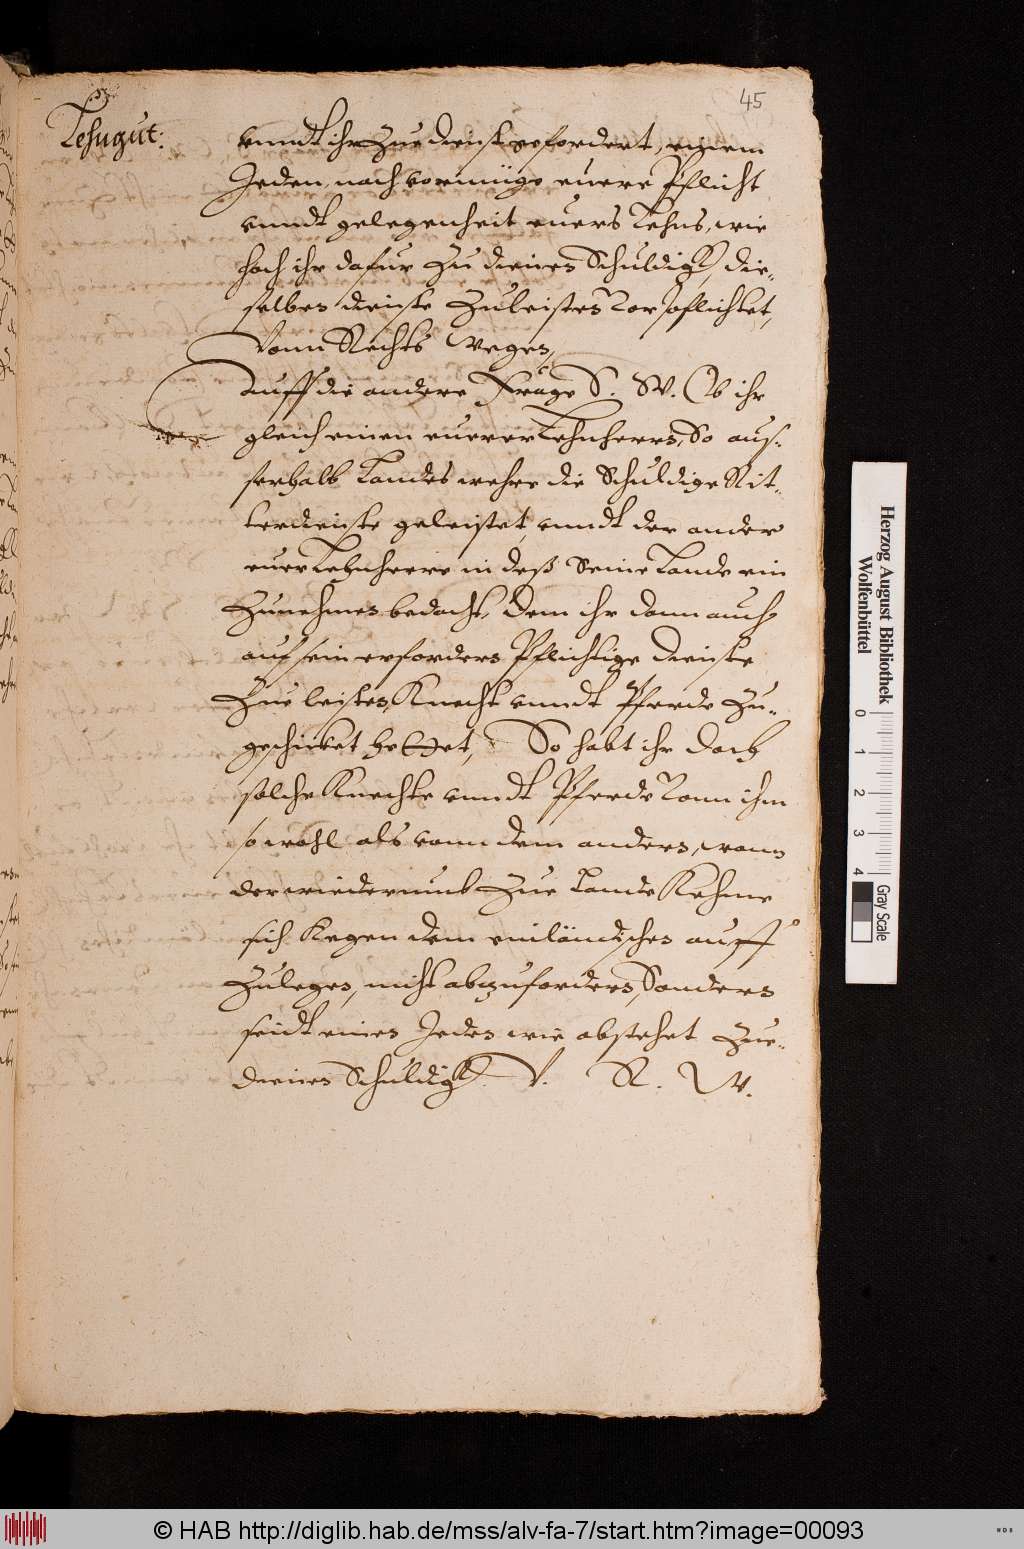 45
Lehngut:
vnndt ihr Zue dienst erfordert, einem
Jeden, nach vormüge euere Pflicht
vnndt gelegenheit euers Lehns, wie
hoch ihr dafur Zu dienen Schuldigk die-
selben dienste Zuleisten Vorpflichtet,
Vonn Rechts Wegen,
Auff die andere Frage S. W. Ob ihr
gleich einen euerer Lehnherrn, So aus-
serhalb Landes wehre die Schuldige Rit-
terdienste geleistet, vnndt der ander
euer Lehnherre in deß Seine Lande ein
Zunehmen bedacht, Dem ihr dann auch
auf sein erfordern Pflichtige dienste
Zue leisten, Knecht vnndt Pferde Zu-
geschicket hettet, So habt ihr doch
solche Knechte vnndt Pferde Vonn ihm
so wohl als vonn dem andern, wann
der wiederumb Zue Lande Kehme
sich kegen dem einländischen auff
Zulegen, nicht abzufordern, Sondern
seidt einen Jeden wie obstehet Zue-
dienen Schuldigk. V. R. W.
Herzog August Bibliothek
Wolfenbüttel
0 1 2 3 4
Gray Scale
© HAB http://diglib.hab.de/mss/alv-fa-7/start.htm?image=00093